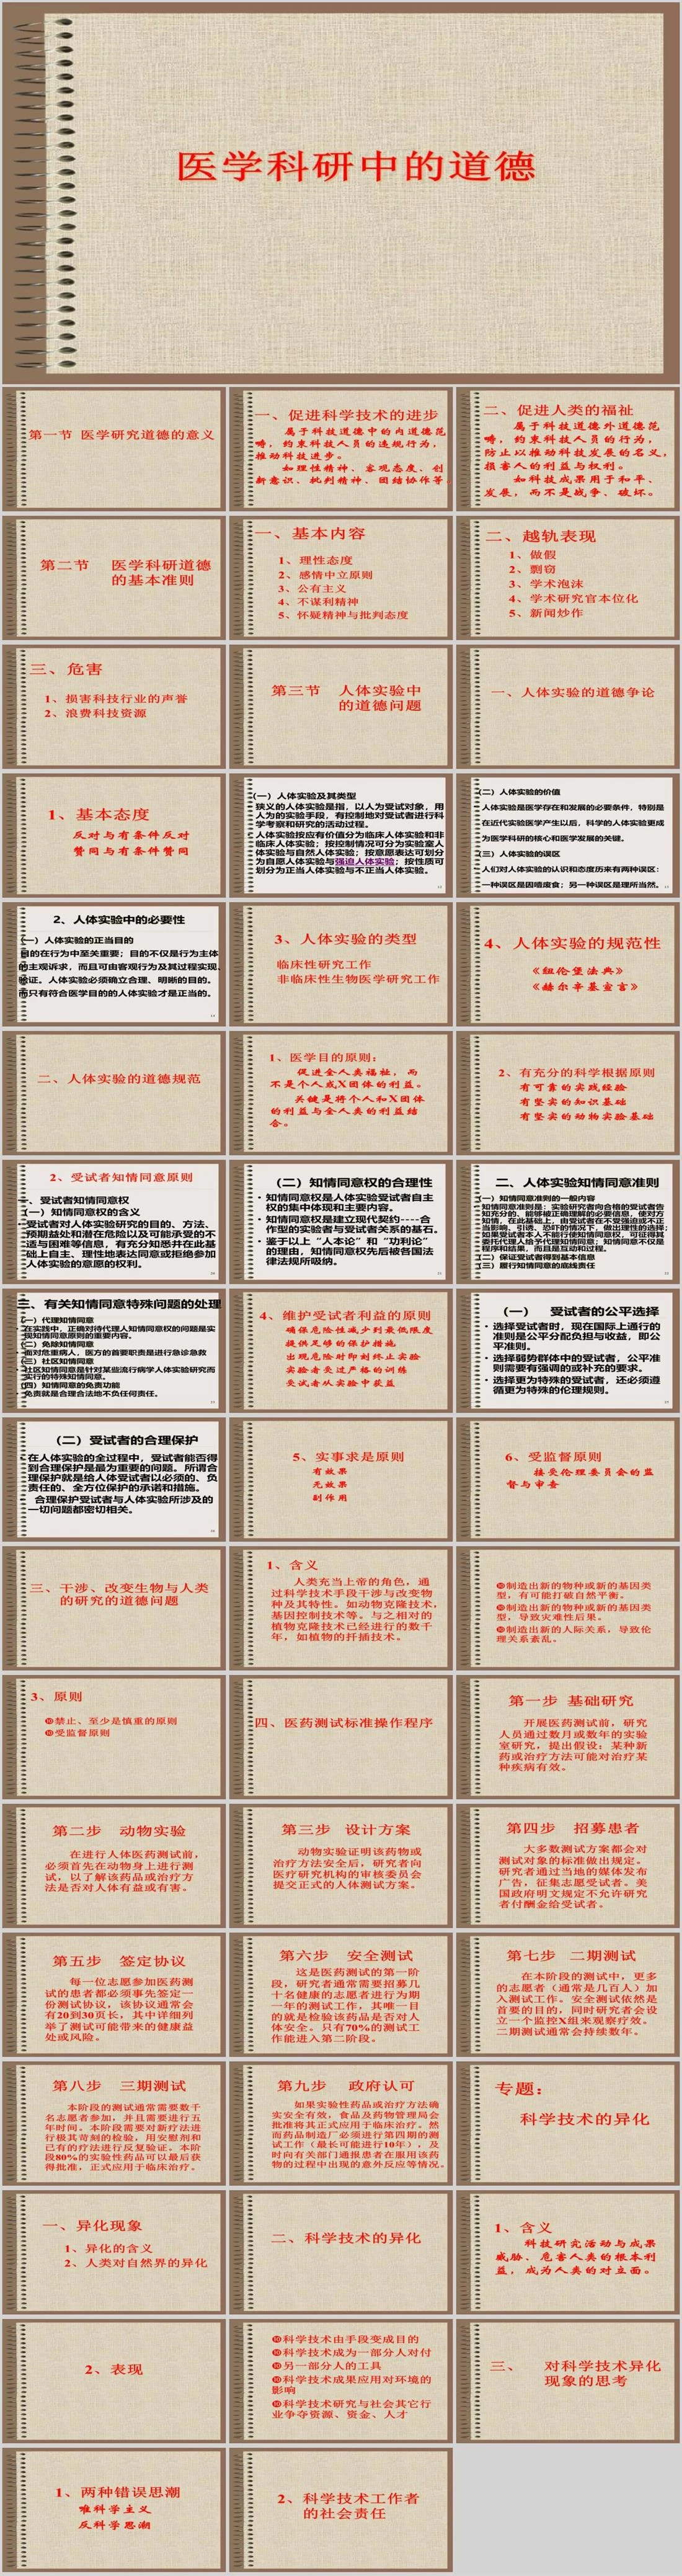 医学科研中的道德
第一节 医学研究道德的意义
一、促进科学技术的进步
属于科技道德中的内道德范
畴，约束科技人员的违规行为，
推动科技进步。
如理性精神、客观态度、创
新意识、批判精神、团结协作等。
二、促进人类的福祉
属于科技道德外道德范
畴，约束科技人员的行为，
防止以推动科技发展的名义，
损害人的利益与权利。
如科技成果用于和平、
发展，而不是战争、破坏。
第二节 医学科研道德
的基本准则
一、基本内容
1、理性态度
2、感情中立原则
3、公有主义
4、不谋利精神
5、怀疑精神与批判态度
二、越轨表现
1、做假
2、剽窃
3、学术泡沫
4、学术研究官本位化
5、新闻炒作
三、危害
1、损害科技行业的声誉
2、浪费科技资源
第三节 人体实验中
的道德问题
一、人体实验的道德争论
1、基本态度
反对与有条件反对
赞同与有条件赞同
（一）人体实验及其类型
狭义的人体实验是指，以人为受试对象，用
人为的实验手段，有控制地对受试者进行科
学考察和研究的活动过程。
人体实验按应有价值分为临床人体实验和非
临床人体实验；按控制情况可分为实验室人
体实验与自然人体实验；按意愿表达可划分
为自愿人体实验与强迫人体实验；按性质可
划分为正当人体实验与不正当人体实验。
（二）人体实验的价值
人体实验是医学存在和发展的必要条件，特别是
在近代实验医学产生以后，科学的人体实验更成
为医学科研的核心和医学发展的关键。
（三）人体实验的误区
人们对人体实验的认识和态度历来有两种误区：
一种误区是因噎废食；另一种误区是理所当然。
2、人体实验中的必要性
（一）人体实验的正当目的
目的在行为中至关重要；目的不仅是行为主体
的主观诉求，而且可由客观行为及其过程实现、
验证。人体实验必须确立合理、明晰的目的。
而只有符合医学目的的人体实验才是正当的。
3、人体实验的类型
临床性研究工作
非临床性生物医学研究工作
4、人体实验的规范性
《纽伦堡法典》
《赫尔辛基宣言》
二、人体实验的道德规范
1、医学目的原则：
促进全人类福祉，而
不是个人或X团体的利益。
关键是将个人和X团体
的利益与全人类的利益结
合。
2、有充分的科学根据原则
有可靠的实践经验
有坚实的知识基础
有坚实的动物实验基础
2、受试者知情同意原则
一、受试者知情同意权
（一）知情同意权的含义
受试者对人体实验研究的目的、方法、
预期益处和潜在危险以及可能承受的不
适与困难等信息，有充分知悉并在此基
础上自主、理性地表达同意或拒绝参加
人体实验的意愿的权利。
（二）知情同意权的合理性
• 知情同意权是人体实验受试者自主
权的集中体现和主要内容。
• 知情同意权是建立现代契约----合
作型的实验者与受试者关系的基石。
• 鉴于以上“人本论”和“功利论”
的理由，知情同意权先后被各国法
律法规所吸纳。
二、人体实验知情同意准则
（一）知情同意准则的一般内容
知情同意准则是：实验研究者向合格的受试者告
知充分的、能够被正确理解的必要信息，使对方
知情，在此基础上，由受试者在不受强迫或不正
当影响、引诱、恐吓的情况下，做出理性的选择；
如果受试者本人不能行使知情同意权，可征得其
委托代理人给予代理知情同意；知情同意不仅是
程序和结果，而且是互动和过程。
（二）保证受试者得到基本信息
（三）履行知情同意的底线责任
三、有关知情同意特殊问题的处理
（一）代理知情同意
在实践中，正确对待代理人知情同意权的问题是实
现知情同意原则的重要内容。
（二）免除知情同意
面对危重病人，医方的首要职责是进行急诊急救
（三）社区知情同意
社区知情同意是针对某些流行病学人体实验研究而
实行的特殊知情同意。
（四）知情同意的免责功能
免责就是合理合法地不负任何责任。
4、维护受试者利益的原则
确保危险性减少到最低限度
提供足够的保护措施
出现危险时即刻终止实验
实验者受过严格的训练
受试者从实验中获益
（一） 受试者的公平选择
• 选择受试者时，现在国际上通行的
准则是公平分配负担与收益，即公
平准则。
• 选择弱势群体中的受试者，公平准
则需要有强调的或补充的要求。
• 选择更为特殊的受试者，还必须遵
循更为特殊的伦理规则。
（二）受试者的合理保护
在人体实验的全过程中，受试者能否得
到合理保护是最为重要的问题。所谓合
理保护就是给人体受试者以必须的、负
责任的、全方位保护的承诺和措施。
合理保护受试者与人体实验所涉及的
一切问题都密切相关。
5、实事求是原则
有效果
无效果
副作用
6、受监督原则
接受伦理委员会的监
督与审查
三、干涉、改变生物与人类
的研究的道德问题
1、含义
人类充当上帝的角色，通
过科学技术手段干涉与改变物
种及其特性。如动物克隆技术，
基因控制技术等。与之相对的
植物克隆技术已经进行的数千
年，如植物的扦插技术。
制造出新的物种或新的基因类
型，有可能打破自然平衡。
制造出新的物种或新的基因类
型，导致灾难性后果。
制造出新的人际关系，导致伦
理关系紊乱。
3、原则
禁止、至少是慎重的原则
受监督原则
四、医药测试标准操作程序
第一步 基础研究
开展医药测试前，研究
人员通过数月或数年的实验
室研究，提出假设：某种新
药或治疗方法可能对治疗某
种疾病有效。
第二步 动物实验
在进行人体医药测试前，
必须首先在动物身上进行测
试，以了解该药品或治疗方
法是否对人体有益或有害。
第三步 设计方案
动物实验证明该药物或
治疗方法安全后，研究者向
医疗研究机构的审核委员会
提交正式的人体测试方案。
第四步 招募患者
大多数测试方案都会对
测试对象的标准做出规定。
研究者通过当地的媒体发布
广告，征集志愿受试者。美
国政府明文规定不允许研究
者付酬金给受试者。
第五步 签定协议
每一位志愿参加医药测
试的患者都必须事先签定一
份测试协议，该协议通常会
有20到30页长，其中详细列
举了测试可能带来的健康益
处或风险。
第六步 安全测试
这是医药测试的第一阶
段，研究者通常需要招募几
十名健康的志愿者进行为期
一年的测试工作，其唯一目
的就是检验该药品是否对人
体安全。只有70%的测试工
作能进入第二阶段。
第七步 二期测试
在本阶段的测试中，更多
的志愿者（通常是几百人）加
入测试工作。安全测试依然是
首要的目的，同时研究者会设
立一个监控X组来观察疗效。
二期测试通常会持续数年。
第八步 三期测试
本阶段的测试通常需要数千
名志愿者参加，并且需要进行五
年时间。本阶段需要对新疗法进
行极其苛刻的检验，用安慰剂和
已有的疗法进行反复验证。本阶
段80%的实验性药品可以最后获
得批准，正式应用于临床治疗。
第九步 政府认可
如果实验性药品或治疗方法确
实安全有效，食品及药物管理局会
批准将其正式应用于临床治疗。然
而药品制造厂必须进行第四期的测
试工作（最长可能进行10年），及
时向有关部门通报患者在服用该药
物的过程中出现的意外反应等情况。
专题：
科学技术的异化
一、异化现象
1、异化的含义
2、人类对自然界的异化
二、科学技术的异化
1、含义
科技研究活动与成果
威胁、危害人类的根本利
益，成为人类的对立面。
2、表现
科学技术由手段变成目的
科学技术成为一部分人对付
另一部分人的工具
科学技术成果应用对环境的
影响
科学技术研究与社会其它行
业争夺资源、资金、人才
三、 对科学技术异化
现象的思考
1、两种错误思潮
唯科学主义
反科学思潮
2、科学技术工作者
的社会责任